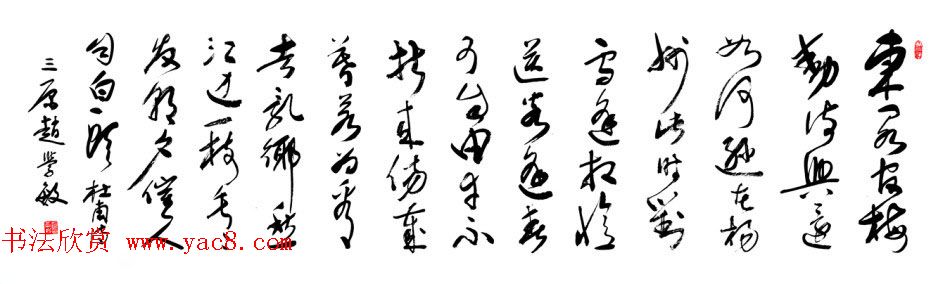 東阁官梅
動诗興還
如何逊在扬
州此时對
雪遥相憶
送客逢春
可自由幸不
折来傷歲
暮若为看
去乱鄉愁
江边一枝垂
发朝夕催人
自白頭 杜甫诗
三原趙學敏
书法欣赏 www.yac8.com